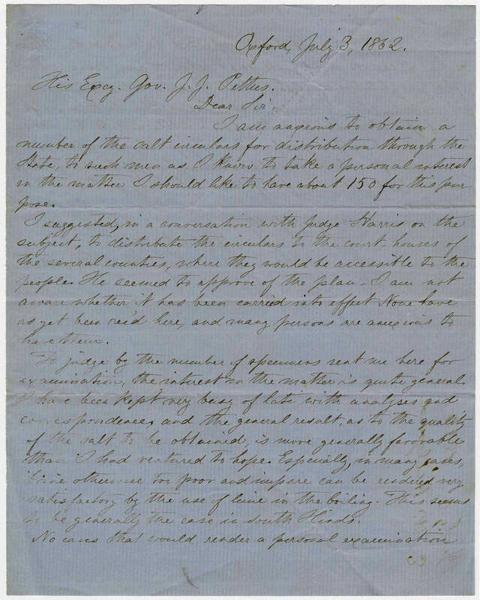 Oxford, July 3, 1862.
His Excy. Gov. J. J. Pettus.
Dear Sir.
I am anxious to obtain a
number of the salt circulars for distribution through the
State, to such men as I know to take a personal interest
in the matter. I should like to have about 150 for this pur
pose.
I suggested, in a conversation with Judge Harris on the
subject, to distribute the circulars to the court houses of
the several counties, where they would be accessible to the
people. He seemed to approve of the plan. I am not
aware whether it has been carried into effect. None have
as yet been rec'd here, and many persons are anxious to
have them.
To judge by the number of specimens sent me here for
examination, the interest in the matter is quite general.
I have been kept very busy of late with analyses and
correspondence, and the general result, as to the quality
of the salt to be obtained, is more generally favorable
than I had ventured to hope. Especially, in many cases,
brine otherwise too poor and impure can be rendered very
satisfactory by the use of lime in the boiling. This seems
to be generally the case in South Hinds.
No cases that would render a personal examination